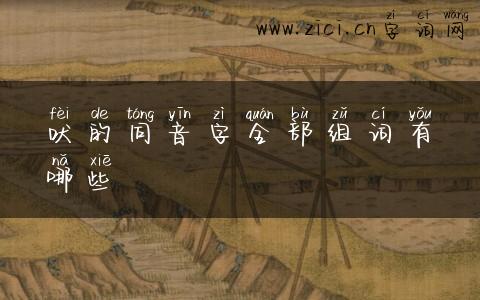 zì cí wǎng
www.zici.cn字词网
fèi de tóng yīn zì quán bù zǔ cí yǒu
吠的同音字全部组词有
nǎ xiē
哪些